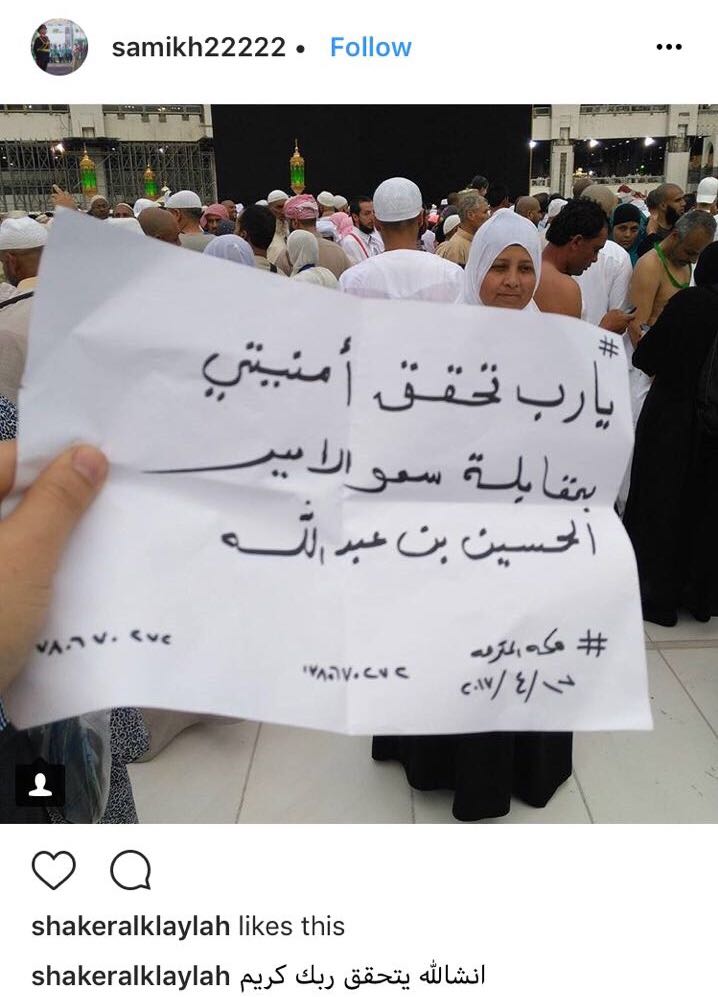 samikh22222 • Follow
# يارب تحقق أمنيتي
بمقابلة سمو الامير
الحسين بن عبدالله
# مكه المكرمه
٧٨٠٦٧٠٢٧٢
shakeralklaylah likes this
shakeralklaylah انشالله يتحقق ربك كريم